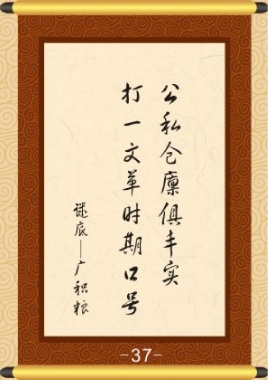 公私仓廪俱丰实
打一文革时期口号
谜底—广积粮
-37-